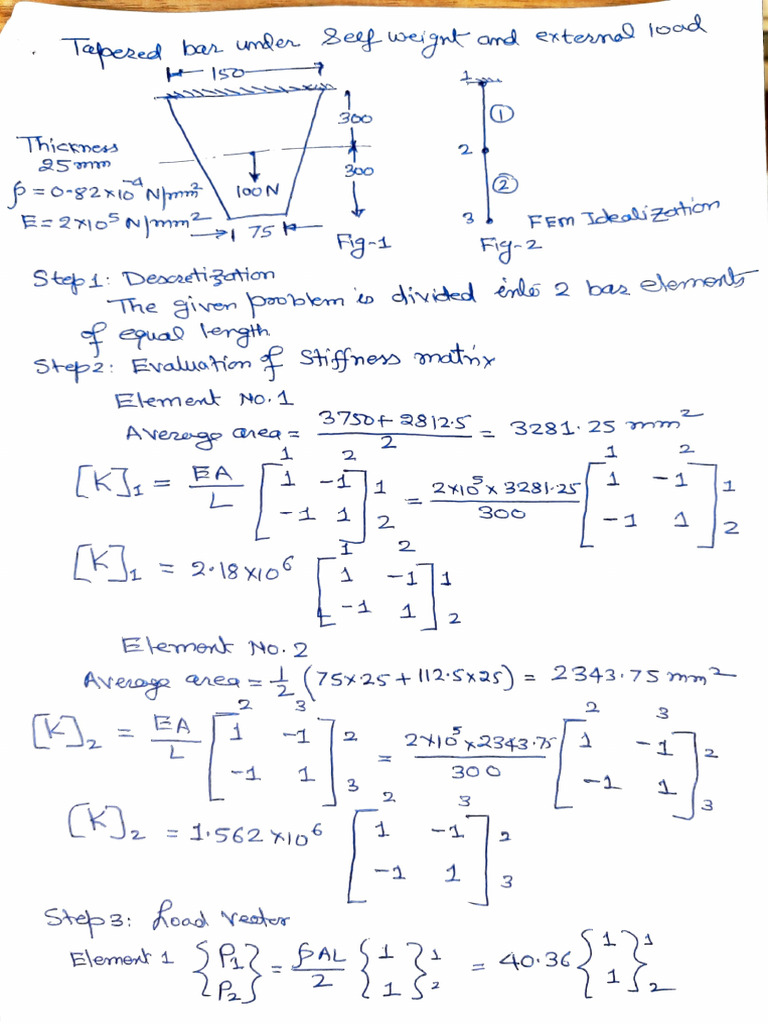 . Tapered bar under Self weight and external load
150
300
300
Thickness
25mm
ρ = 0.82×10⁻⁴ N/mm³
E = 2×10⁵ N/mm²
100N
75
Fig-1
1
①
2
②
3
FEM Idealization
Fig-2
Step 1: Descretization
The given problem is divided into 2 bar elements
of equal length
Step2: Evaluation of Stiffness matrix
Element No. 1
Average area = (3750 + 2812.5)/2 = 3281.25 mm²
1 2 1 2
[K]₁ = EA/L [1 -1; -1 1] 1 2 = 2×10⁵ × 3281.25/300 [1 -1; -1 1] 1 2
1 2
[K]₁ = 2.18×10⁶ [1 -1; -1 1] 1 2
Element No. 2
Average area = 1/2 (75×25 + 112.5×25) = 2343.75 mm²
2 3 2 3
[K]₂ = EA/L [1 -1; -1 1] 2 3 = 2×10⁵ × 2343.75/300 [1 -1; -1 1] 2 3
2 3
[K]₂ = 1.562×10⁶ [1 -1; -1 1] 2 3
Step 3: Load Vector
Element 1 {P₁; P₂} = ρAL/2 {1; 1} 1 2 = 40.36 {1; 1} 1 2